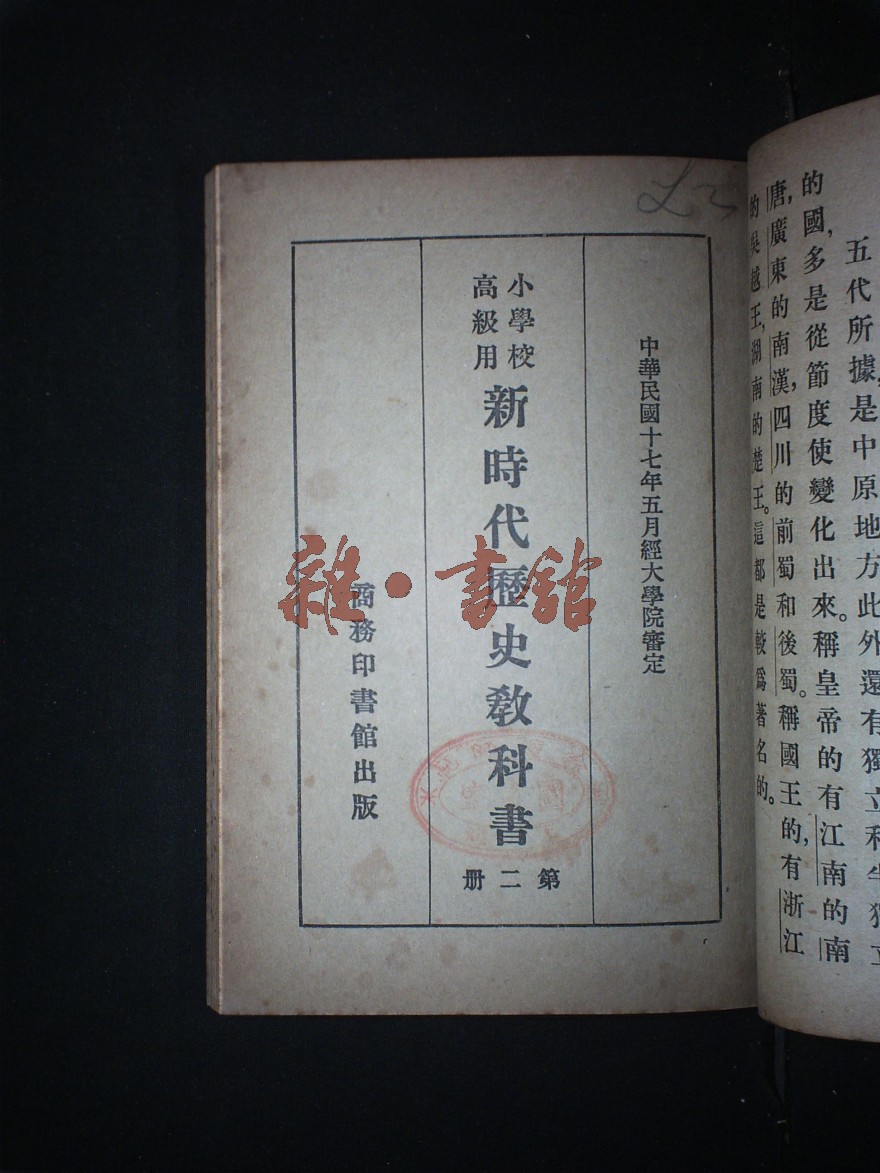 五代所據，是中原地方此外還有獨立和半獨立
的國，多是從節度使變化出來。稱皇帝的有江南的南
唐，廣東的南漢，四川的前蜀和後蜀。稱國王的，有浙江
的吳越王，湖南的楚王。這都是較爲著名的。
中華民國十七年五月經大學院審定
小學校
高級用
新時代歷史教科書
第二册
商務印書館出版
雜·書館